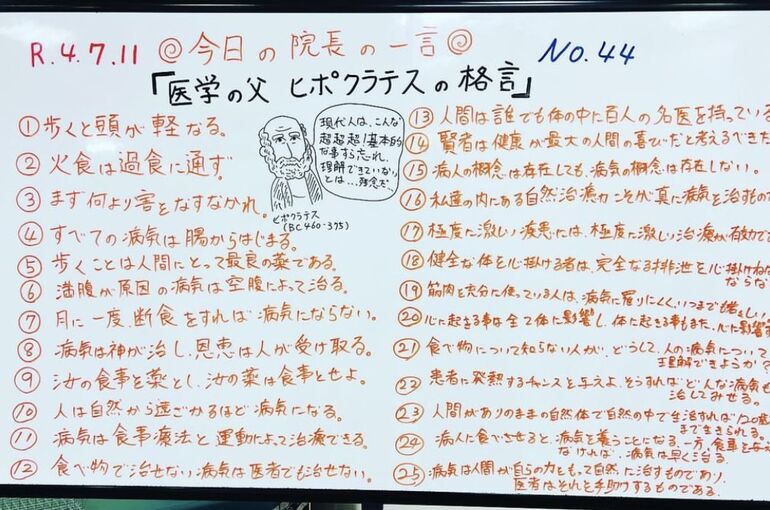 R.4.7.11 ◎今日の院長の一言◎ No.44
「医学の父 ヒポクラテスの格言」
①歩くと頭が軽なる。
②火食は過食に通ず。
③まず何より害をなすなかれ。
④すべての病気は腸からはじまる。
⑤歩くことは人間にとって最良の薬である。
⑥満腹が原因の病気は空腹によって治る。
⑦月に一度断食をすれば病気にならない。
⑧病気は神が治し、恩恵は人が受け取る。
⑨汝の食事を薬とし、汝の薬は食事とせよ。
⑩人は自然から遠ざかるほど病気になる。
⑪病気は食事療法と運動によって治療できる。
⑫食べ物で治せない病気は医者でも治せない。
現代人は、こんな
超超超!基本的
な事すら忘れ、
理解できていない
とは…残念だ。
ヒポクラテス
(BC460-375)
⑬人間は誰でも体の中に百人の名医を持っている
⑭賢者は健康が最大の人間の喜びだと考えるべきだ
⑮病人の概念は存在しても、病気の概念は存在しない。
⑯私達の内にある自然治癒力こそが真に病気を治すもので
⑰極度に激しい疾患には、極度に激しい治療が有効で
⑱健全な体を心掛ける者は、完全なる排泄を心掛けねば
ならない
⑲筋肉を充分に使っている人は、病気に罹りにくく、いつまでも若々しい
⑳心に起きる事は全て体に影響し、体に起きる事もまた、心に影響す
㉑食べ物について知らない人が、どうして、人の病気について
理解できようか?
㉒患者に発熱するチャンスを与えよ。そうすればどんな病気も
治してみせる。
㉓人間がありのままの自然体で自然の中で生活すれば120歳
まで生きられる。
㉔病人に食べさせると、病気を養うことになる。一方、食事を与え
なければ、病気は早く治る。
㉕病気は人間が自らの力をもって自然に治すものであり、
医者はそれを手助けするものである。